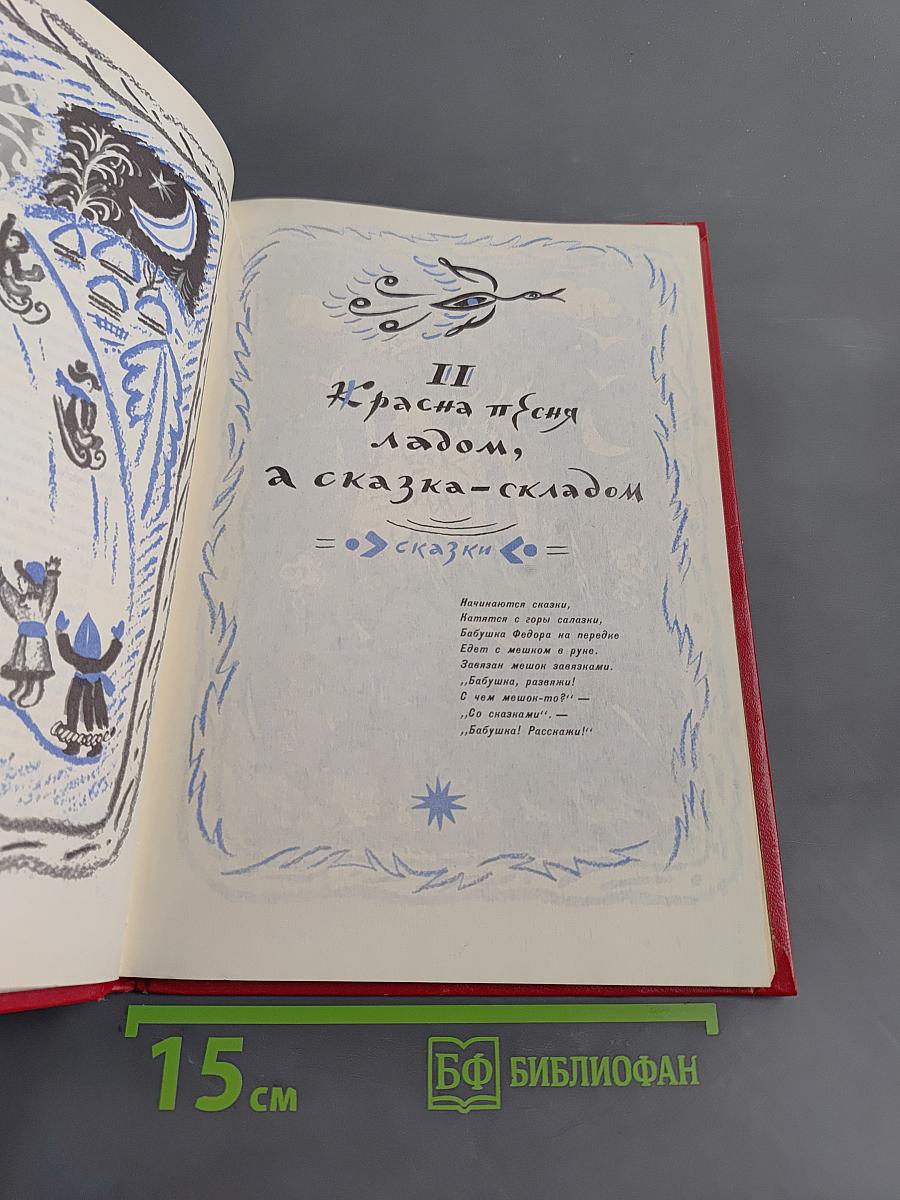 II
Красна пѣсня
ладом,
а сказка—складом
сказки
Начинаются сказки,
Катятся с горы салазки,
Бабушка Федора на передке
Едет с мешком в руке.
Завязан мешок завязками.
„Бабушка, развяжи!
С чем мешок-то?“ —
„Со сказками“. —
„Бабушка! Расскажи!“
15 см
БФ БИБЛИОФАН